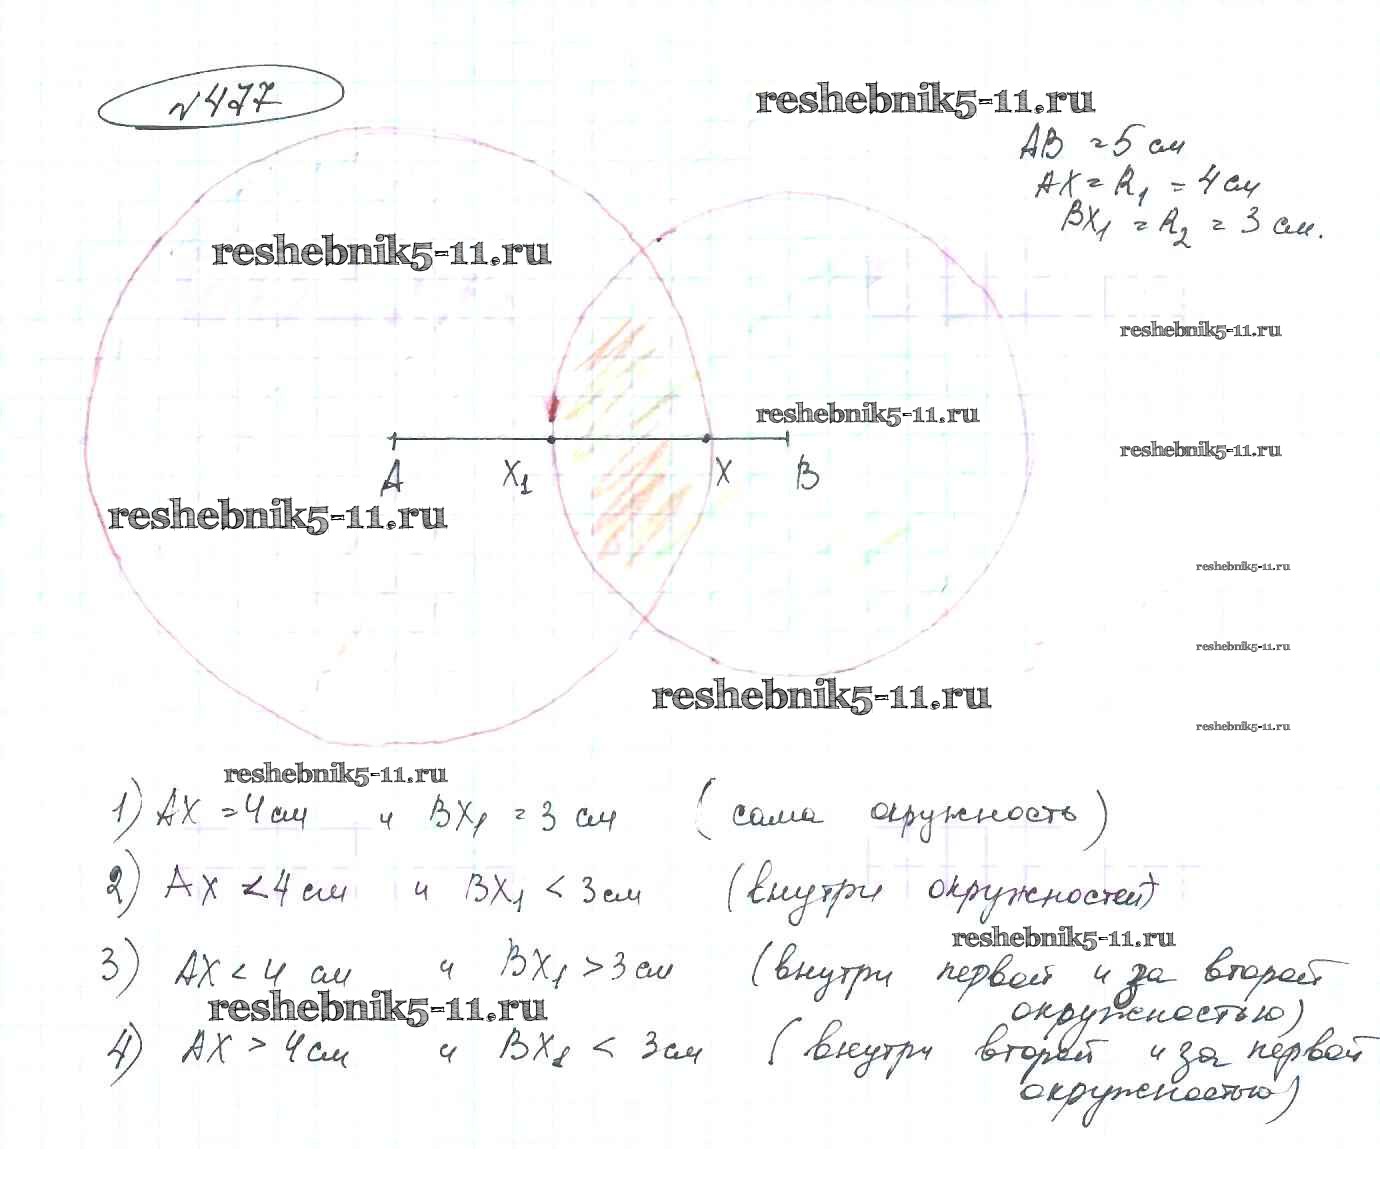 №477
reshebnik5-11.ru
AB = 5 см
AX = R1 = 4 см
BX1 = R2 = 3 см.
reshebnik5-11.ru
reshebnik5-11.ru
reshebnik5-11.ru
reshebnik5-11.ru
A X1 X B
reshebnik5-11.ru
reshebnik5-11.ru
reshebnik5-11.ru
reshebnik5-11.ru
reshebnik5-11.ru
reshebnik5-11.ru
1) AX = 4 см и BX1 = 3 см (сама окружность)
2) AX < 4 см и BX1 < 3 см (внутри окружностей)
reshebnik5-11.ru
3) AX < 4 см и BX1 > 3 см (внутри первой и за второй
reshebnik5-11.ru
окружностью)
4) AX > 4 см и BX1 < 3 см (внутри второй и за первой
окружностью)